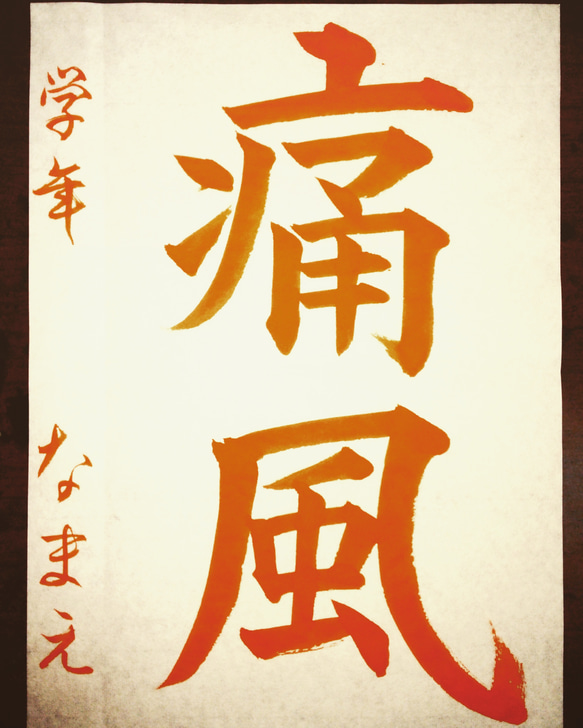 痛風
学年 なまえ